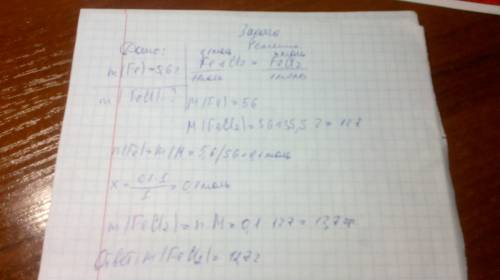 Задача
Дано: Решение
m(Fe)=5,6г Fe+Cl₂=FeCl₂
1моль 1моль
m(FeCl₂)-? M(Fe)=56
M(FeCl₂)=56+35,5·2=127
n(Fe)=m/M=5,6/56=0,1моль
x=0,1·1/1=0,1моль
m(FeCl₂)=n·M=0,1·127=12,7гр
Ответ: m(FeCl₂)=12,7г